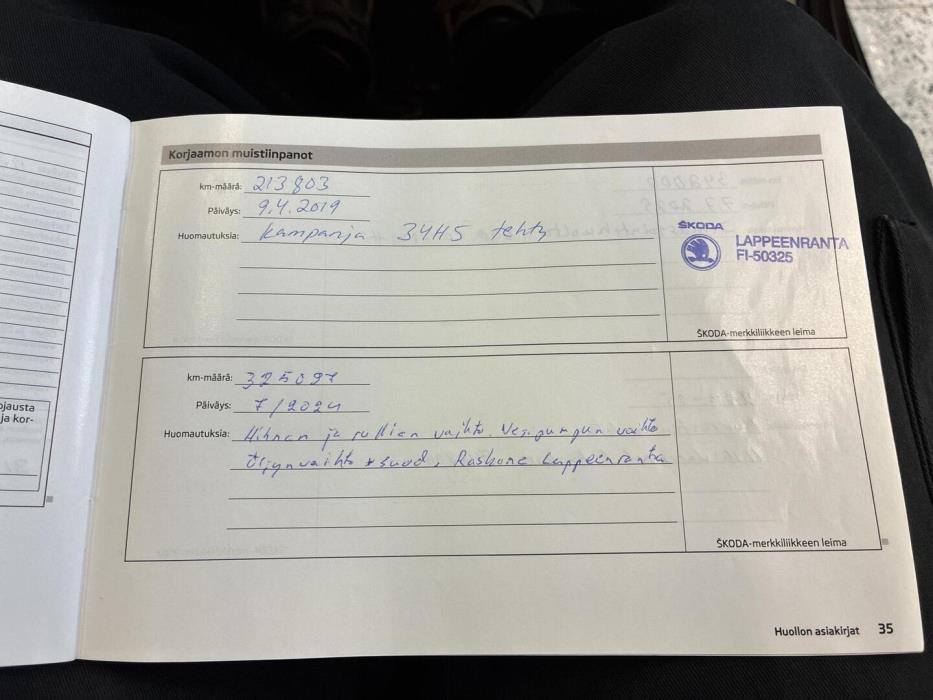 Korjaamon muistiinpanot
km-määrä: 213803
Päiväys: 9.4.2019
Huomautuksia: Kampanja 34H5 tehty
ŠKODA
LAPPEENRANTA
FI-50325
ŠKODA-merkkiliikkeen leima
km-määrä: 325097
Päiväys: 7/2024
Huomautuksia: Hihnan ja rullien vaihto. Vesipumpun vaihto
Öljynvaihto + suod, Raskone Lappeenranta
ŠKODA-merkkiliikkeen leima
ojausta
ja kor-
Huollon asiakirjat 35